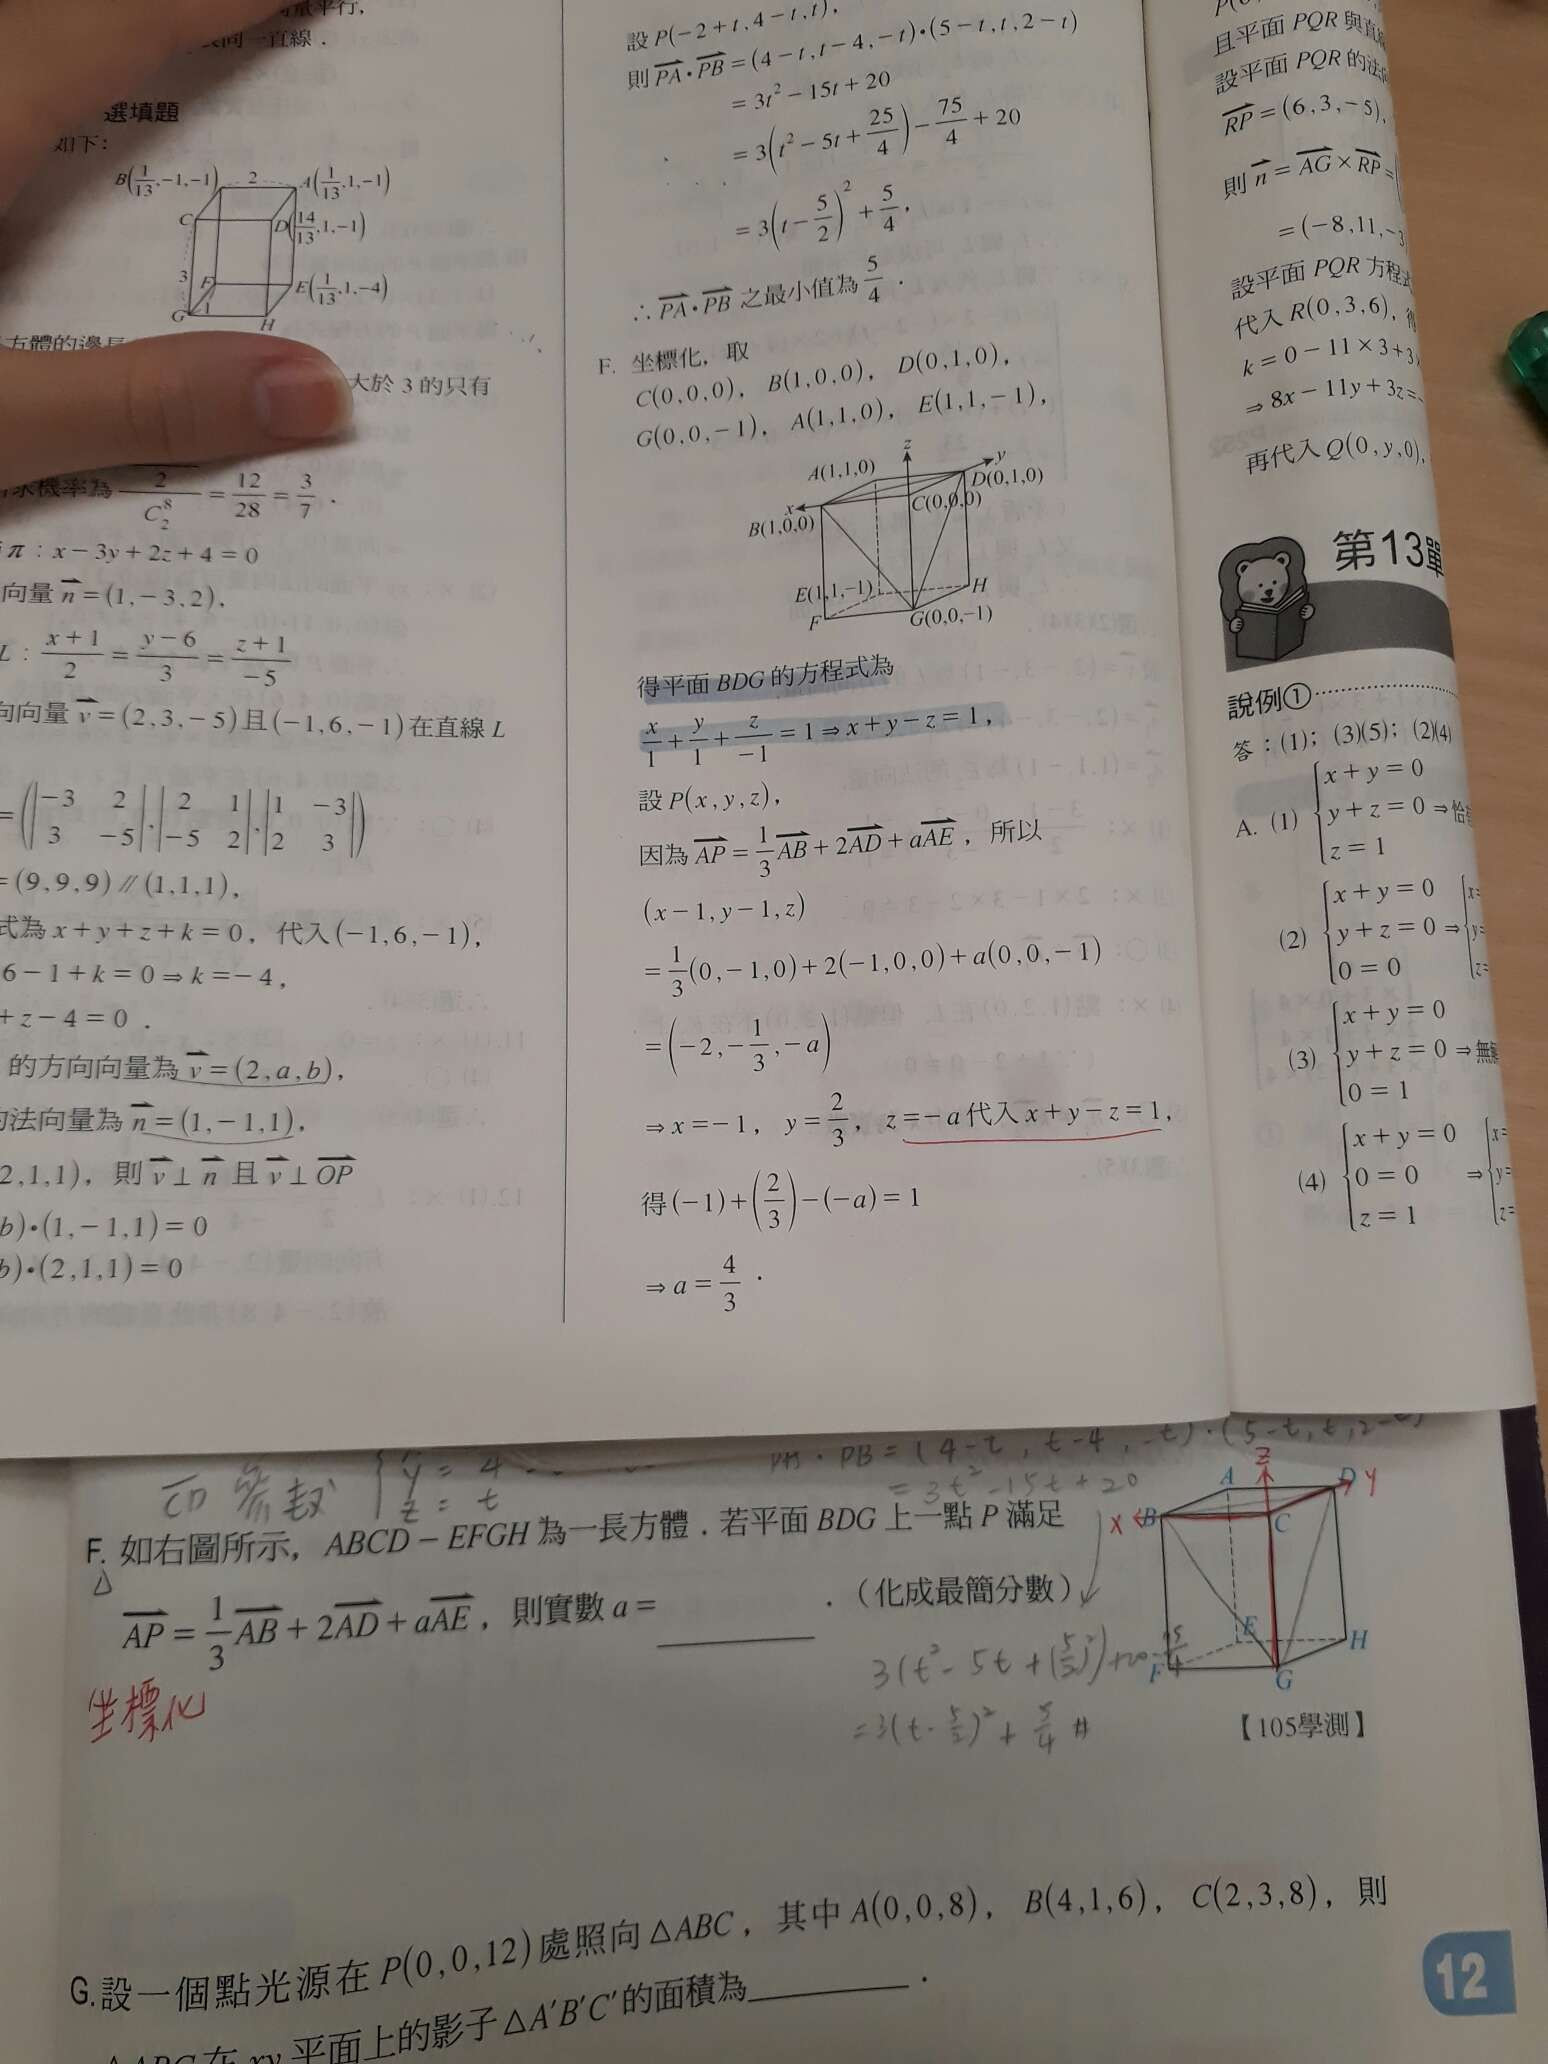 表同一直線.
選填題
如下:
B(1/13,-1,-1) 2 A(1/13,1,-1)
C D(14/13,1,-1)
3 F E(1/13,1,-4)
G 1 H
大於 3 的只有
求機率為 2/C₂⁸ = 12/28 = 3/7 .
π : x-3y+2z+4=0
向量 n=(1,-3,2),
L : (x+1)/2 = (y-6)/3 = (z+1)/-5
向向量 v=(2,3,-5)且(-1,6,-1)在直線 L
=(|-3 2; 3 -5|,|2 1; -5 2|,|1 -3; 2 3|)
=(9,9,9)∥(1,1,1),
式為 x+y+z+k=0, 代入(-1,6,-1),
6-1+k=0⇒k=-4,
+z-4=0 .
的方向向量為 v=(2,a,b),
的法向量為 n=(1,-1,1),
2,1,1), 則 v⊥n 且 v⊥OP
b)•(1,-1,1)=0
b)•(2,1,1)=0
設 P(-2+t,4-t,t),
則 PA•PB=(4-t,t-4,-t)•(5-t,t,2-t)
=3t²-15t+20
=3(t²-5t+25/4)-75/4+20
=3(t-5/2)²+5/4,
∴PA•PB 之最小值為 5/4 .
F. 坐標化, 取
C(0,0,0), B(1,0,0), D(0,1,0),
G(0,0,-1), A(1,1,0), E(1,1,-1),
z
y
A(1,1,0) D(0,1,0)
x C(0,0,0)
B(1,0,0)
E(1,1,-1) H
F G(0,0,-1)
得平面 BDG 的方程式為
x/1+y/1+z/-1=1⇒x+y-z=1,
設 P(x,y,z),
因為 AP=1/3AB+2AD+aAE, 所以
(x-1,y-1,z)
=1/3(0,-1,0)+2(-1,0,0)+a(0,0,-1)
=(-2,-1/3,-a)
⇒x=-1, y=2/3, z=-a 代入 x+y-z=1,
得(-1)+(2/3)-(-a)=1
⇒a=4/3 .
且平面 PQR 與直
設平面 PQR 的法
RP=(6,3,-5),
則 n=AG×RP=
=(-8,11,-3
設平面 PQR 方程式
代入 R(0,3,6),
k=0-11×3+3
⇒8x-11y+3z=
再代入 Q(0,y,0),
第13單
說例①
答:(1); (3)(5); (2)(4)
A. (1) {x+y=0
y+z=0 ⇒恰
z=1
(2) {x+y=0 {x=
y+z=0 ⇒ y=
0=0 z=
(3) {x+y=0
y+z=0 ⇒無
0=1
(4) {x+y=0 {x=
0=0 ⇒ y=
z=1 z=
PA · PB = (4-t, t-4, -t)·(5-t,t,2-t)
= 3t²-15t+20
y = 4
z = t
F. 如右圖所示, ABCD-EFGH 為一長方體.若平面 BDG 上一點 P 滿足
AP=1/3AB+2AD+aAE, 則實數 a=______.(化成最簡分數)
坐標化
3(t²-5t+(5/2)²)+20
=3(t-5/2)²+5/4 #
Z
A D Y
X B C
E H
F G
【105學測】
G.設一個點光源在 P(0,0,12)處照向△ABC, 其中 A(0,0,8), B(4,1,6), C(2,3,8), 則
△ABC 在 xy 平面上的影子△A'B'C'的面積為______.
12